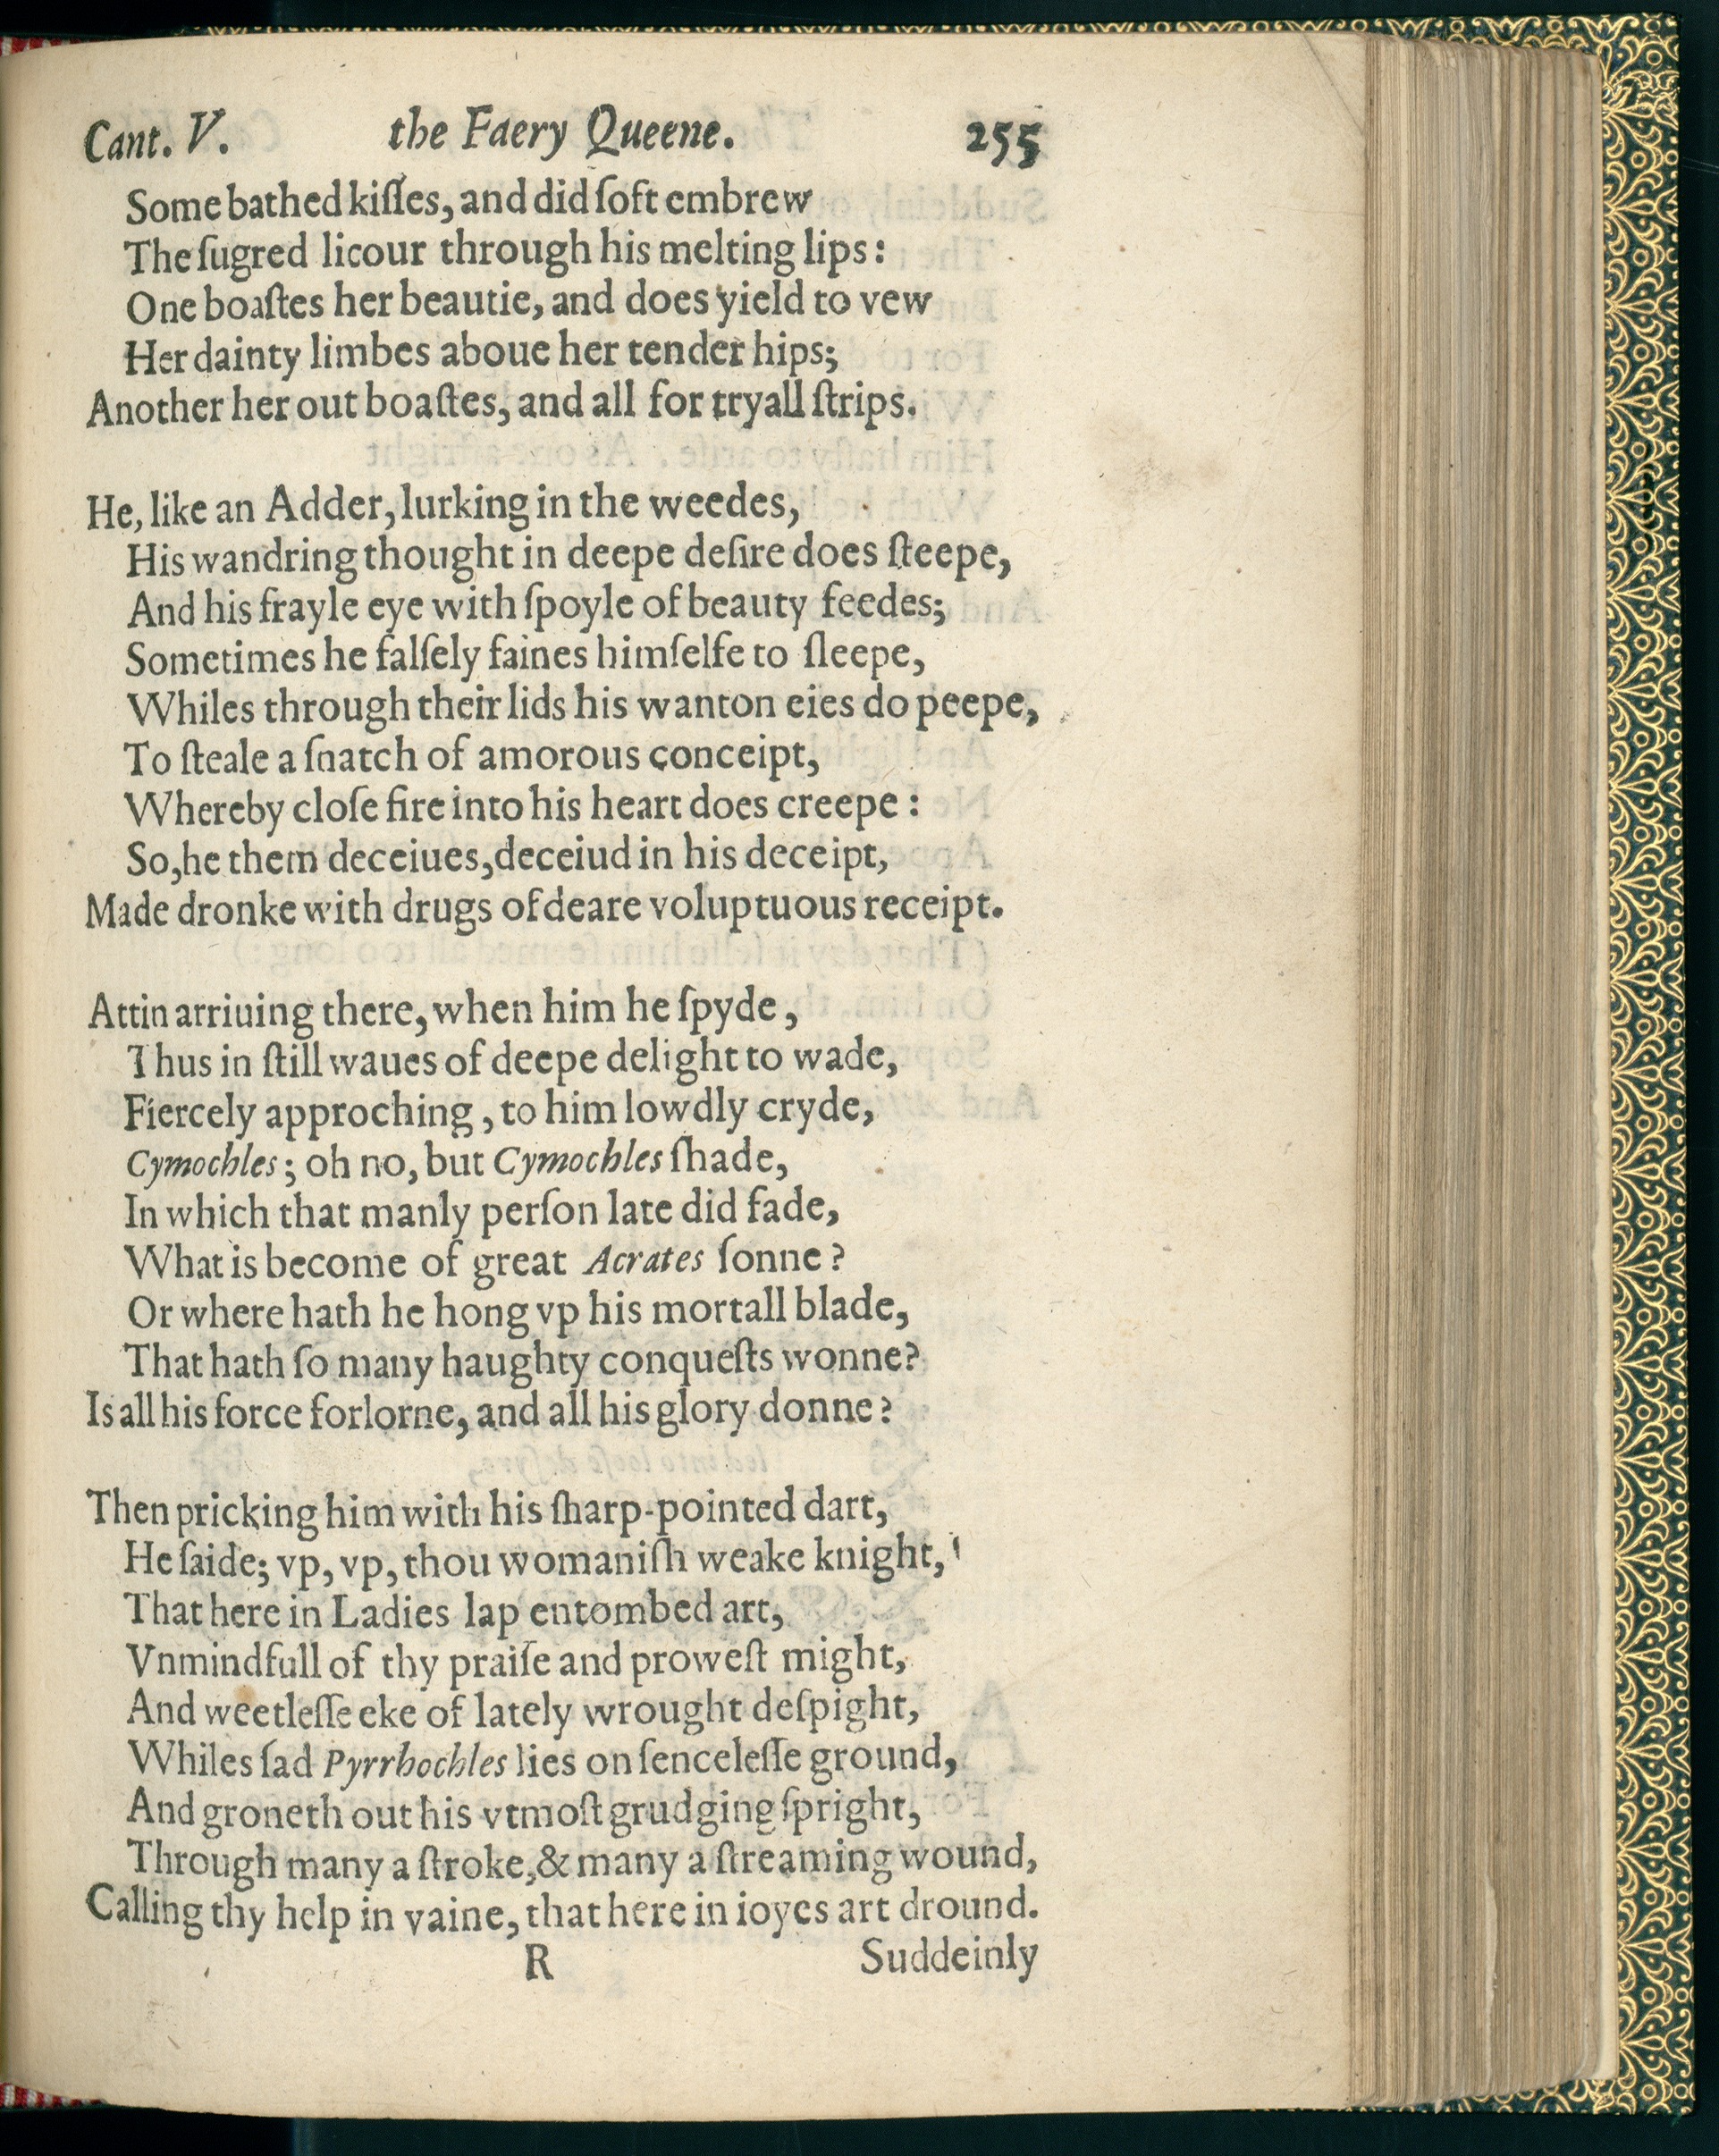 Cant. V. the Faery Queene. 255
Some bathed kiſſes, and did ſoft embrew
The ſugred licour through his melting lips:
One boaſtes her beautie, and does yield to vew
Her dainty limbes aboue her tender hips;
Another her out boaſtes, and all for tryall ſtrips.
He, like an Adder, lurking in the weedes,
His wandring thought in deepe deſire does ſteepe,
And his frayle eye with ſpoyle of beauty feedes;
Sometimes he falſely faines himſelfe to ſleepe,
Whiles through their lids his wanton eies do peepe,
To ſteale a ſnatch of amorous conceipt,
Whereby cloſe fire into his heart does creepe:
So, he them deceiues, deceiud in his deceipt,
Made dronke with drugs of deare voluptuous receipt.
Attin arriuing there, when him he ſpyde,
Thus in ſtill waues of deepe delight to wade,
Fiercely approching, to him lowdly cryde,
Cymochles; oh no, but Cymochles ſhade,
In which that manly perſon late did fade,
What is become of great Acrates ſonne?
Or where hath he hong vp his mortall blade,
That hath ſo many haughty conqueſts wonne?
Is all his force forlorne, and all his glory donne?
Then pricking him with his ſharp-pointed dart,
He ſaide; vp, vp, thou womaniſh weake knight,
That here in Ladies lap entombed art,
Vnmindfull of thy praiſe and proweſt might,
And weetleſſe eke of lately wrought deſpight,
Whiles ſad Pyrrhochles lies on ſenceleſſe ground,
And groneth out his vtmoſt grudging ſpright,
Through many a ſtroke, & many a ſtreaming wound,
Calling thy help in vaine, that here in ioyes art dround.
R Suddeinly